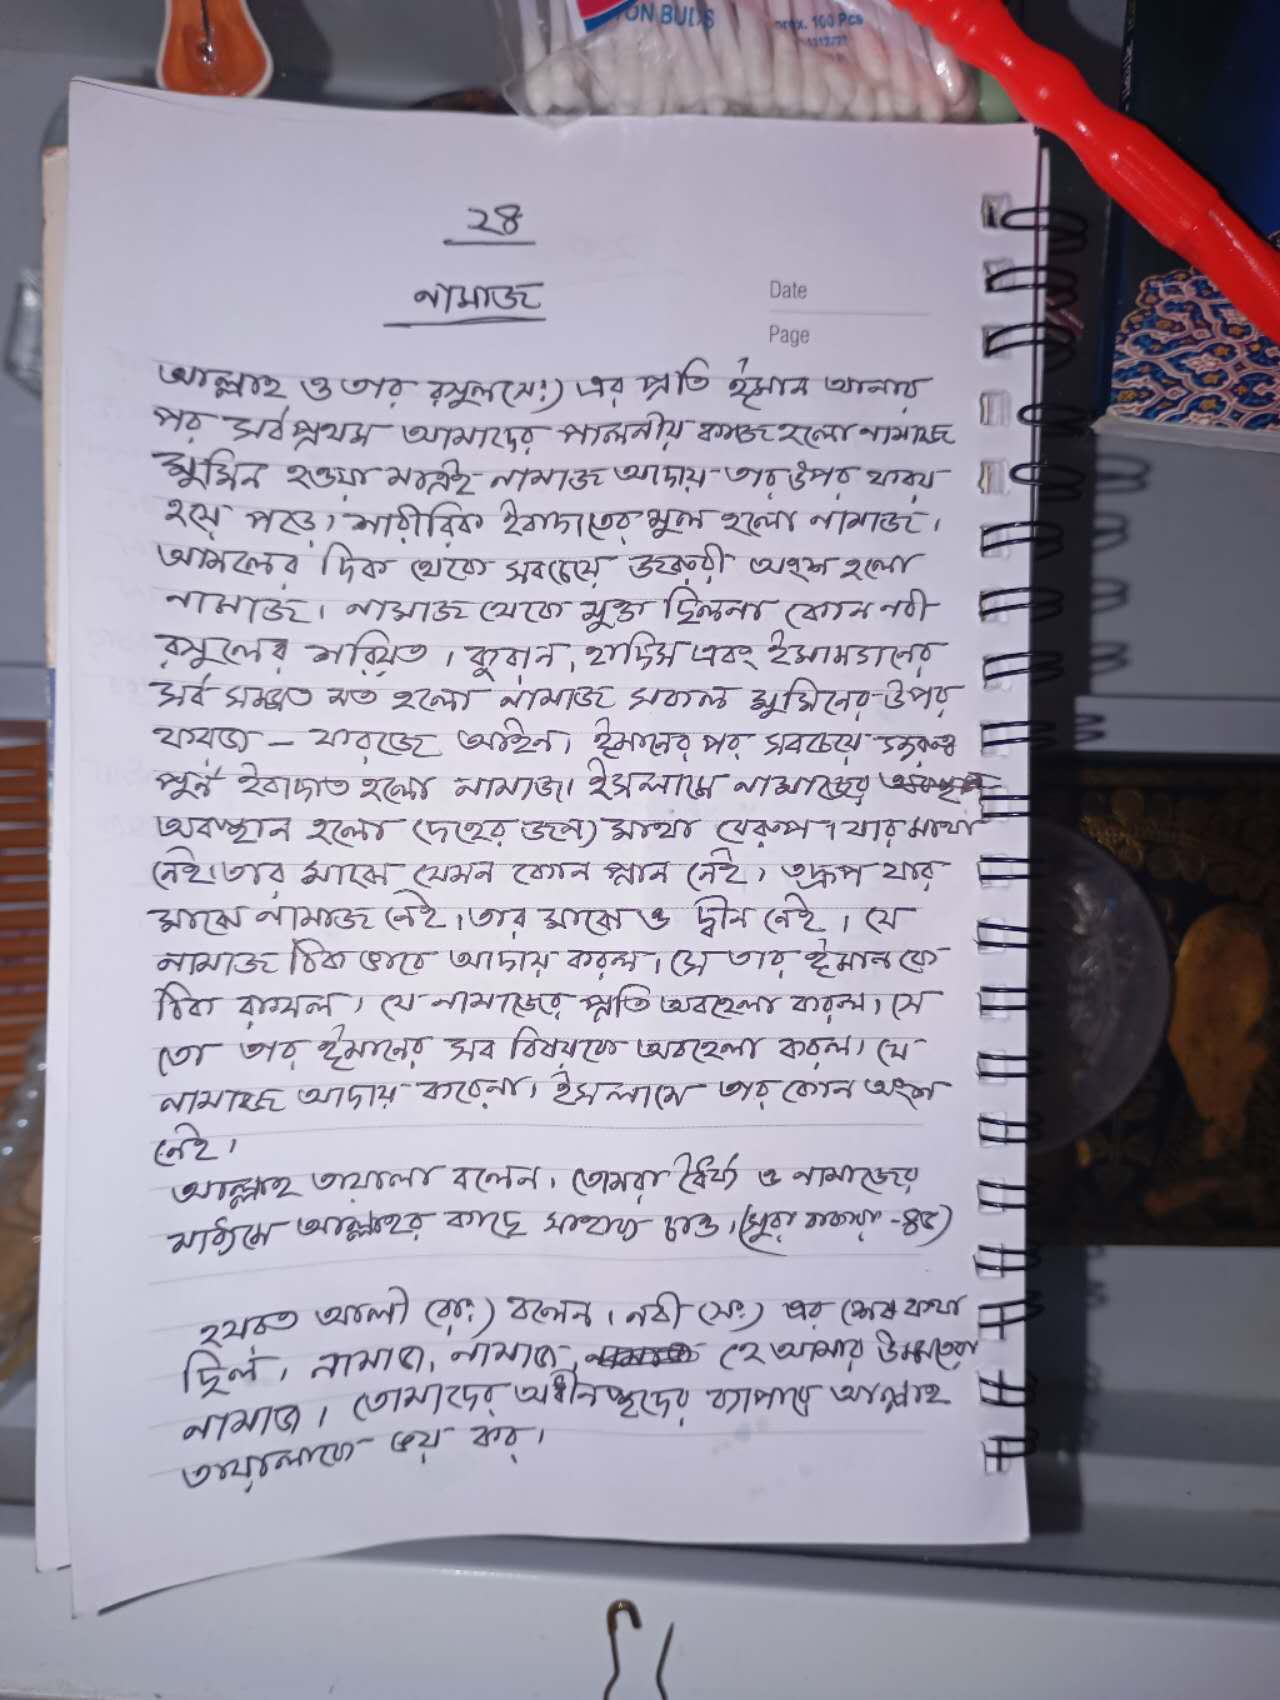 ON BUDS
prox. 100 Pcs
২৪
নামাজ
Date
Page
আল্লাহ ও তার রসুল(সঃ) এর প্রতি ঈমান আনার
পর সর্ব প্রথম আমাদের পালনীয় কাজ হলো নামাজ
মুমিন হওয়া মাত্রই নামাজ আদায় তার উপর ফরয
হয়ে পরে। শারীরিক ইবাদাতের মুল হলো নামাজ।
আমলের দিক থেকে সবচেয়ে জরুরী অংশ হলো
নামাজ। নামাজ থেকে মুক্ত ছিলনা কোন নবী
রসুলের শরিয়ত। কুরান, হাদিস এবং ইমামগনের
সর্ব সম্মত মত হলো নামাজ সকল মুমিনের উপর
ফরজ - ফরজে আইন। ঈমানের পর সবচেয়ে গুরুত্ব
পুর্ন ইবাদাত হলো নামাজ। ইসলামে নামাজের
অবস্থান হলো দেহের জন্য মাথা যেরূপ। যার মাথা
নেই। তার মাঝে যেমন কোন প্রান নেই। তদ্রূপ যার
মাঝে নামাজ নেই। তার মাঝে ও দ্বীন নেই। যে
নামাজ ঠিক ভাবে আদায় করল। সে তার ঈমান কে
ঠিক রাখল। যে নামাজের প্রতি অবহেলা করল। সে
তো তার ঈমানের সব বিষয়কে অবহেলা করল। যে
নামাজ আদায় করেনা। ইসলামে তার কোন অংশ
নেই।
আল্লাহ তায়ালা বলেন। তোমরা ধৈর্য্য ও নামাজের
মাধ্যমে আল্লাহর কাছে সাহায্য চাও। (সুরা বাকারা -৪৫)
হযরত আলী (রাঃ) বলেন। নবী (সঃ) এর শেষ কথা
ছিল। নামাজ, নামাজ, হে আমার উম্মতেরা
নামাজ। তোমাদের অধীনস্থদের ব্যাপারে আল্লাহ
তায়ালাকে ভয় কর।